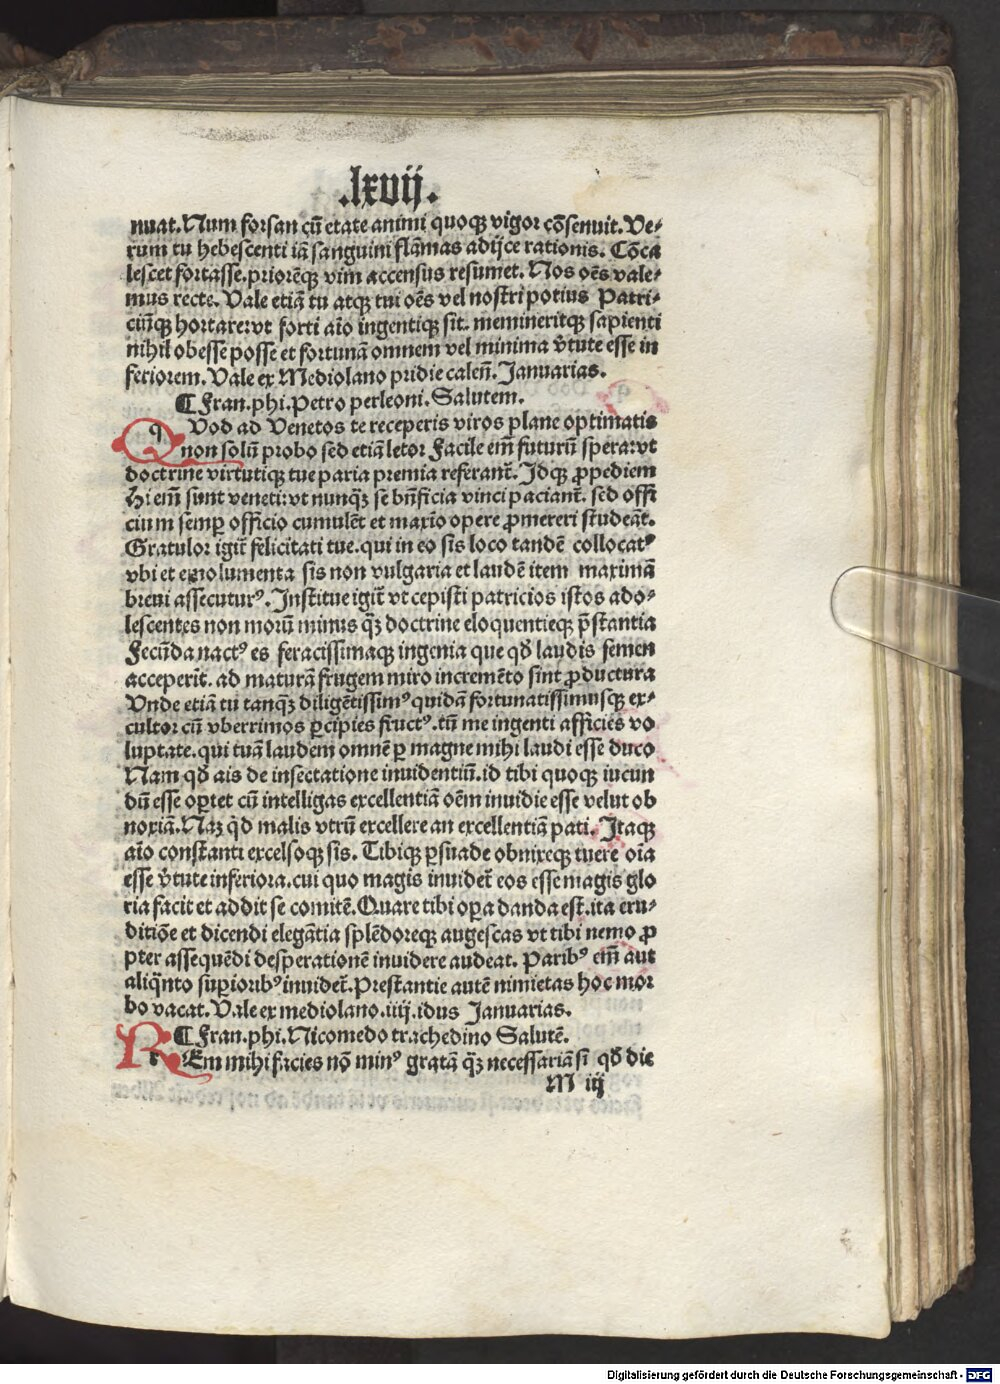 .lxvij.
nuat. Num forsan cũ etate animi quoqꝫ vigor cõsenuit. Ve⸗
rum tu hebescenti iã sanguini flãmas adijce rationis. Cõca
lescet fortasse. priorẽqꝫ vim accensus resumet. Nos oẽs vale⸗
mus recte. Vale etiã tu atqꝫ tui oẽs vel nostri potius Patri⸗
ciũqꝫ hortare: vt forti aĩo ingentiqꝫ sit. memineritqꝫ sapienti
nihil obesse posse et fortunã omnem vel minima v̄tute esse in
feriorem. Vale ex Mediolano pridie caleñ. Januarias.
¶ Fran. phi. Petro perleoni. Salutem.
q Vod ad Venetos te receperis viros plane optimatis
non solũ probo sed etiã letor Facile em̃ futurũ spera: vt
doctrine virtutiqꝫ tue paria premia referant̃. Jdqꝫ ꝓpediem
Hi em̃ sunt veneti: vt nunqꝫ̃ se bñficia vinci paciant̃. sed offi
cium semꝑ officio cumulẽt et maxĩo opere ꝓmereri studeãt.
Gratulor igit̃ felicitati tue. qui in eo sis loco tandẽ collocatꝰ
vbi et emolumenta sis non vulgaria et laudẽ item maximã
breui assecuturꝰ. Institue igit̃ vt cepisti patricios istos ado⸗
lescentes non morũ minus qꝫ̃ doctrine eloquentieqꝫ p̃stantia
Fecũda nactꝰ es feracissimaqꝫ ingenia que qđ laudis semen
acceperit. ad maturã frugem miro incremẽto sint ꝓductura
Vnde etiã tu tanqꝫ̃ diligẽtissimꝰ quidã fortunatissimusqꝫ ex⸗
cultor cũ vberrimos ꝑcipies fructꝰ. tũ me ingenti afficies vo
luptate. qui tuã laudem omnẽ ꝑ magne mihi laudi esse duco
Nam qđ ais de insectatione inuidentiũ. id tibi quoqꝫ iucun
dũ esse oꝑtet cũ intelligas excellentiã oẽm inuidie esse velut ob
noxiã. Naꝫ qd̃ malis vtrũ excellere an excellentiã pati. Jtaqꝫ
aĩo constanti excelsoqꝫ sis. Tibiqꝫ ꝑsuade obnixeqꝫ tuere oĩa
esse v̄tute inferiora. cui quo magis inuidet̃ eos esse magis glo
ria facit et addit se comitẽ. Quare tibi oꝑa danda est. ita eru⸗
ditiõe et dicendi elegãtia splẽdoreqꝫ augescas vt tibi nemo ꝓ
pter assequẽdi desperationẽ inuidere audeat. Paribꝰ em̃ aut
aliqñto suꝑioribꝰ inuidet̃. Prestantie autẽ nimietas hoc mor
bo vacat. Vale ex mediolano. iiij. idus Januarias.
¶ Fran. phi. Nicomedo trachedino Salutẽ.
r Em mihi facies nõ minꝰ gratã qꝫ̃ necessariã si qđ die
M iij
Digitalisierung gefördert durch die Deutsche Forschungsgemeinschaft - DFG